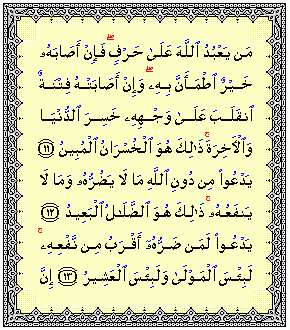 مَن يَعْبُدُ ٱللَّهَ عَلَىٰ حَرْفٍۖ فَإِنْ أَصَابَهُۥ
خَيْرٌ ٱطْمَأَنَّ بِهِۦۖ وَإِنْ أَصَابَتْهُ فِتْنَةٌ
ٱنقَلَبَ عَلَىٰ وَجْهِهِۦ خَسِرَ ٱلدُّنْيَا
وَٱلْأَخِرَةَۚ ذَٰلِكَ هُوَ ٱلْخُسْرَانُ ٱلْمُبِينُ ﴿١١﴾
يَدْعُوا۟ مِن دُونِ ٱللَّهِ مَا لَا يَضُرُّهُۥ وَمَا لَا
يَنفَعُهُۥۚ ذَٰلِكَ هُوَ ٱلضَّلَٰلُ ٱلْبَعِيدُ ﴿١٢﴾
يَدْعُوا۟ لَمَن ضَرُّهُۥٓ أَقْرَبُ مِن نَّفْعِهِۦۚ
لَبِئْسَ ٱلْمَوْلَىٰ وَلَبِئْسَ ٱلْعَشِيرُ ﴿١٣﴾ إِنَّ